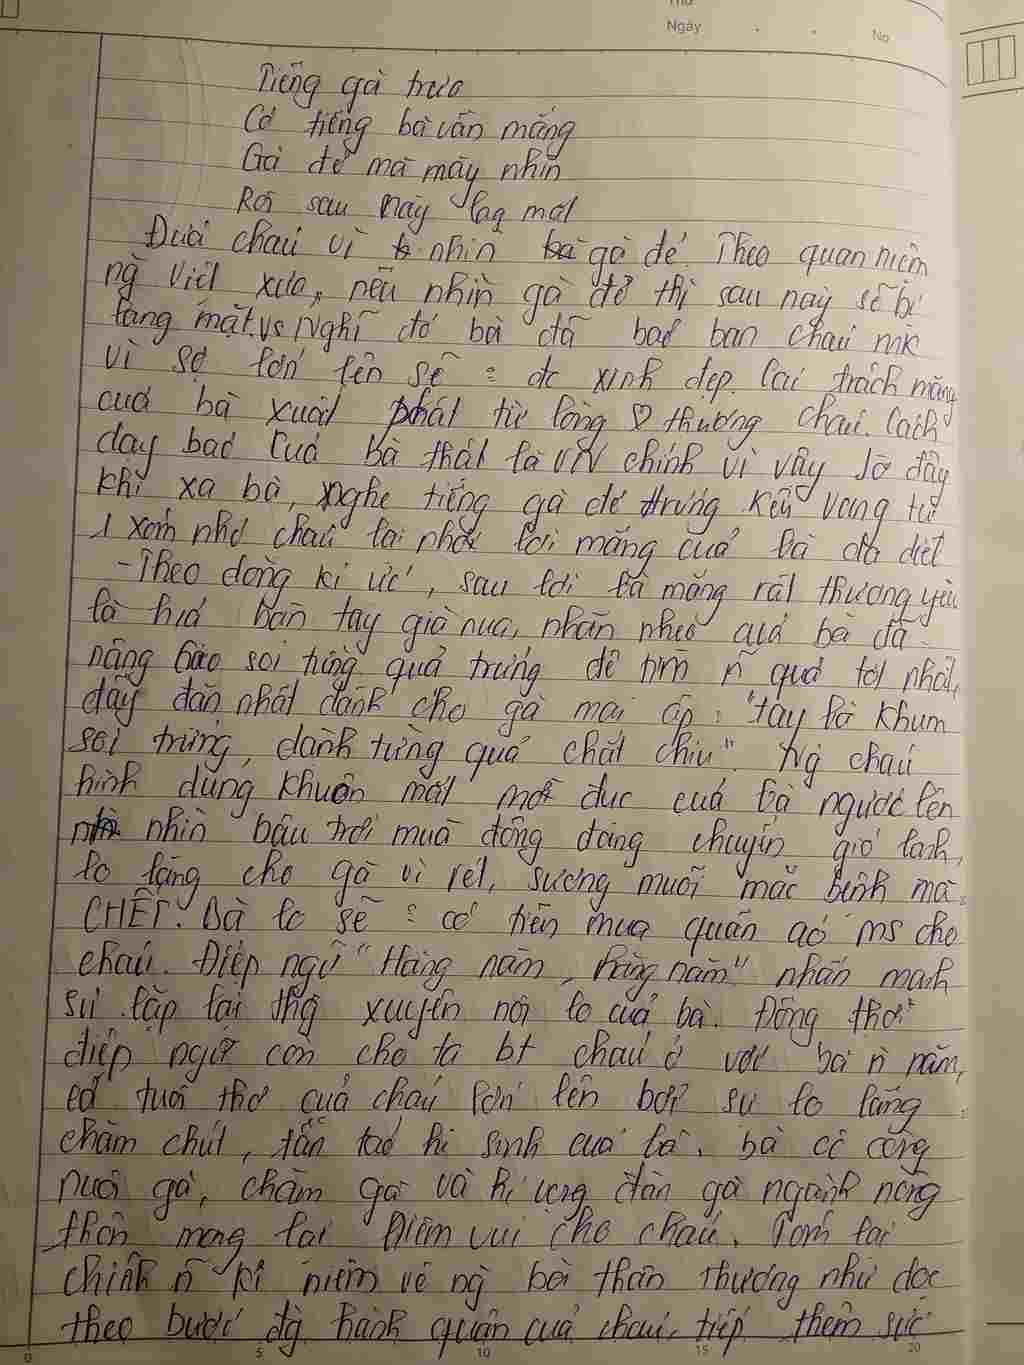 Thứ
Ngày . . No
Tiếng gà trưa
Có tiếng bà vẫn mắng
Gà đẻ mà mày nhìn
Rồi sau này lag mặt
Đứa cháu vì nhìn gà đẻ. Theo quan niệm
ng việt xưa, nếu nhìn gà đẻ thì sau này sẽ bị
lang mặt. Vs Nghĩ đó bà đã bảo ban cháu mk
vì sợ lớn lên sẽ đc xinh đẹp. Cái trách mắng
của bà xuất phát từ lòng ♡ thương cháu. Cách
dạy bảo của bà thật là chính vì vậy giờ đây
khi xa bà, nghe tiếng gà đẻ trứng kêu vang từ
1 xóm nhỏ cháu lại nhớ lời mắng của bà da diết
- Theo dòng kí ức, sau lời bà mắng rất thương yêu
là h.á bàn tay già nua, nhăn nheo của bà đã
nâng soi từng quả trứng để tìm n quả tốt nhất,
đầy đặn nhất dành cho gà mái ấp: "tay bà khum
soi trứng, dành từng quả chắt chiu". Ng cháu
hình dung khuôn mặt mờ đục của bà ngước lên
nhìn bầu trời mùa đông đang chuyển gió lạnh,
lo lắng cho gà vì rét, sương muối mắc bệnh mà
CHẾT. Bà lo sẽ có tiền mua quần áo ms cho
cháu. Điệp ngữ "Hàng năm, hàng năm" nhấn mạnh
sự lặp lại thg xuyên nỗi lo của bà. Đồng thời
điệp ngữ còn cho ta bt cháu ở với bà n năm,
cả tuổi thơ của cháu lớn lên bởi sự lo lắng
chăm chút, tần tảo hi sinh của bà. bà có công
nuôi gà, chăm gà và hi vọng đàn gà ngành nông
thôn mang lại niềm vui cho cháu. Tóm lại
chính n kỉ niệm về ng bà thân thương như dõi
theo bước đg hành quân của cháu, tiếp thêm sức
0 5 10 15 20